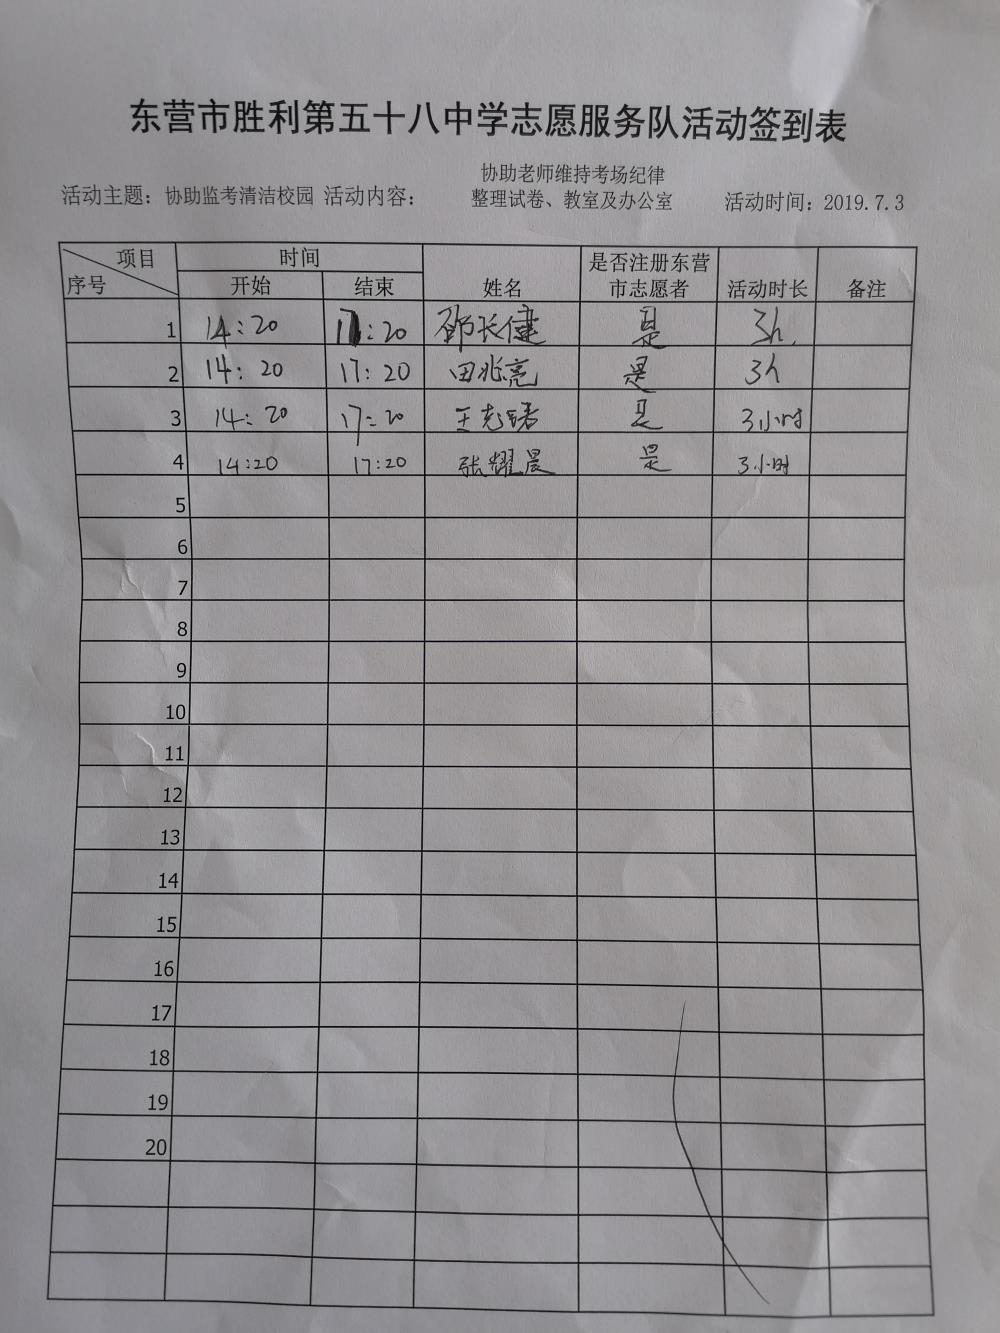 东营市胜利第五十八中学志愿服务队活动签到表
协助老师维持考场纪律
活动主题：协助监考清洁校园 活动内容： 整理试卷、教室及办公室 活动时间：2019.7.3
项目 时间 是否注册东营
序号 开始 结束 姓名 市志愿者 活动时长 备注
1 14:20 17:20 邵长健 是 3h.
2 14:20 17:20 田兆亮 是 3h
3 14:20 17:20 王志 是 3小时
4 14:20 17:20 张耀晨 是 3小时
5
6
7
8
9
10
11
12
13
14
15
16
17
18
19
20